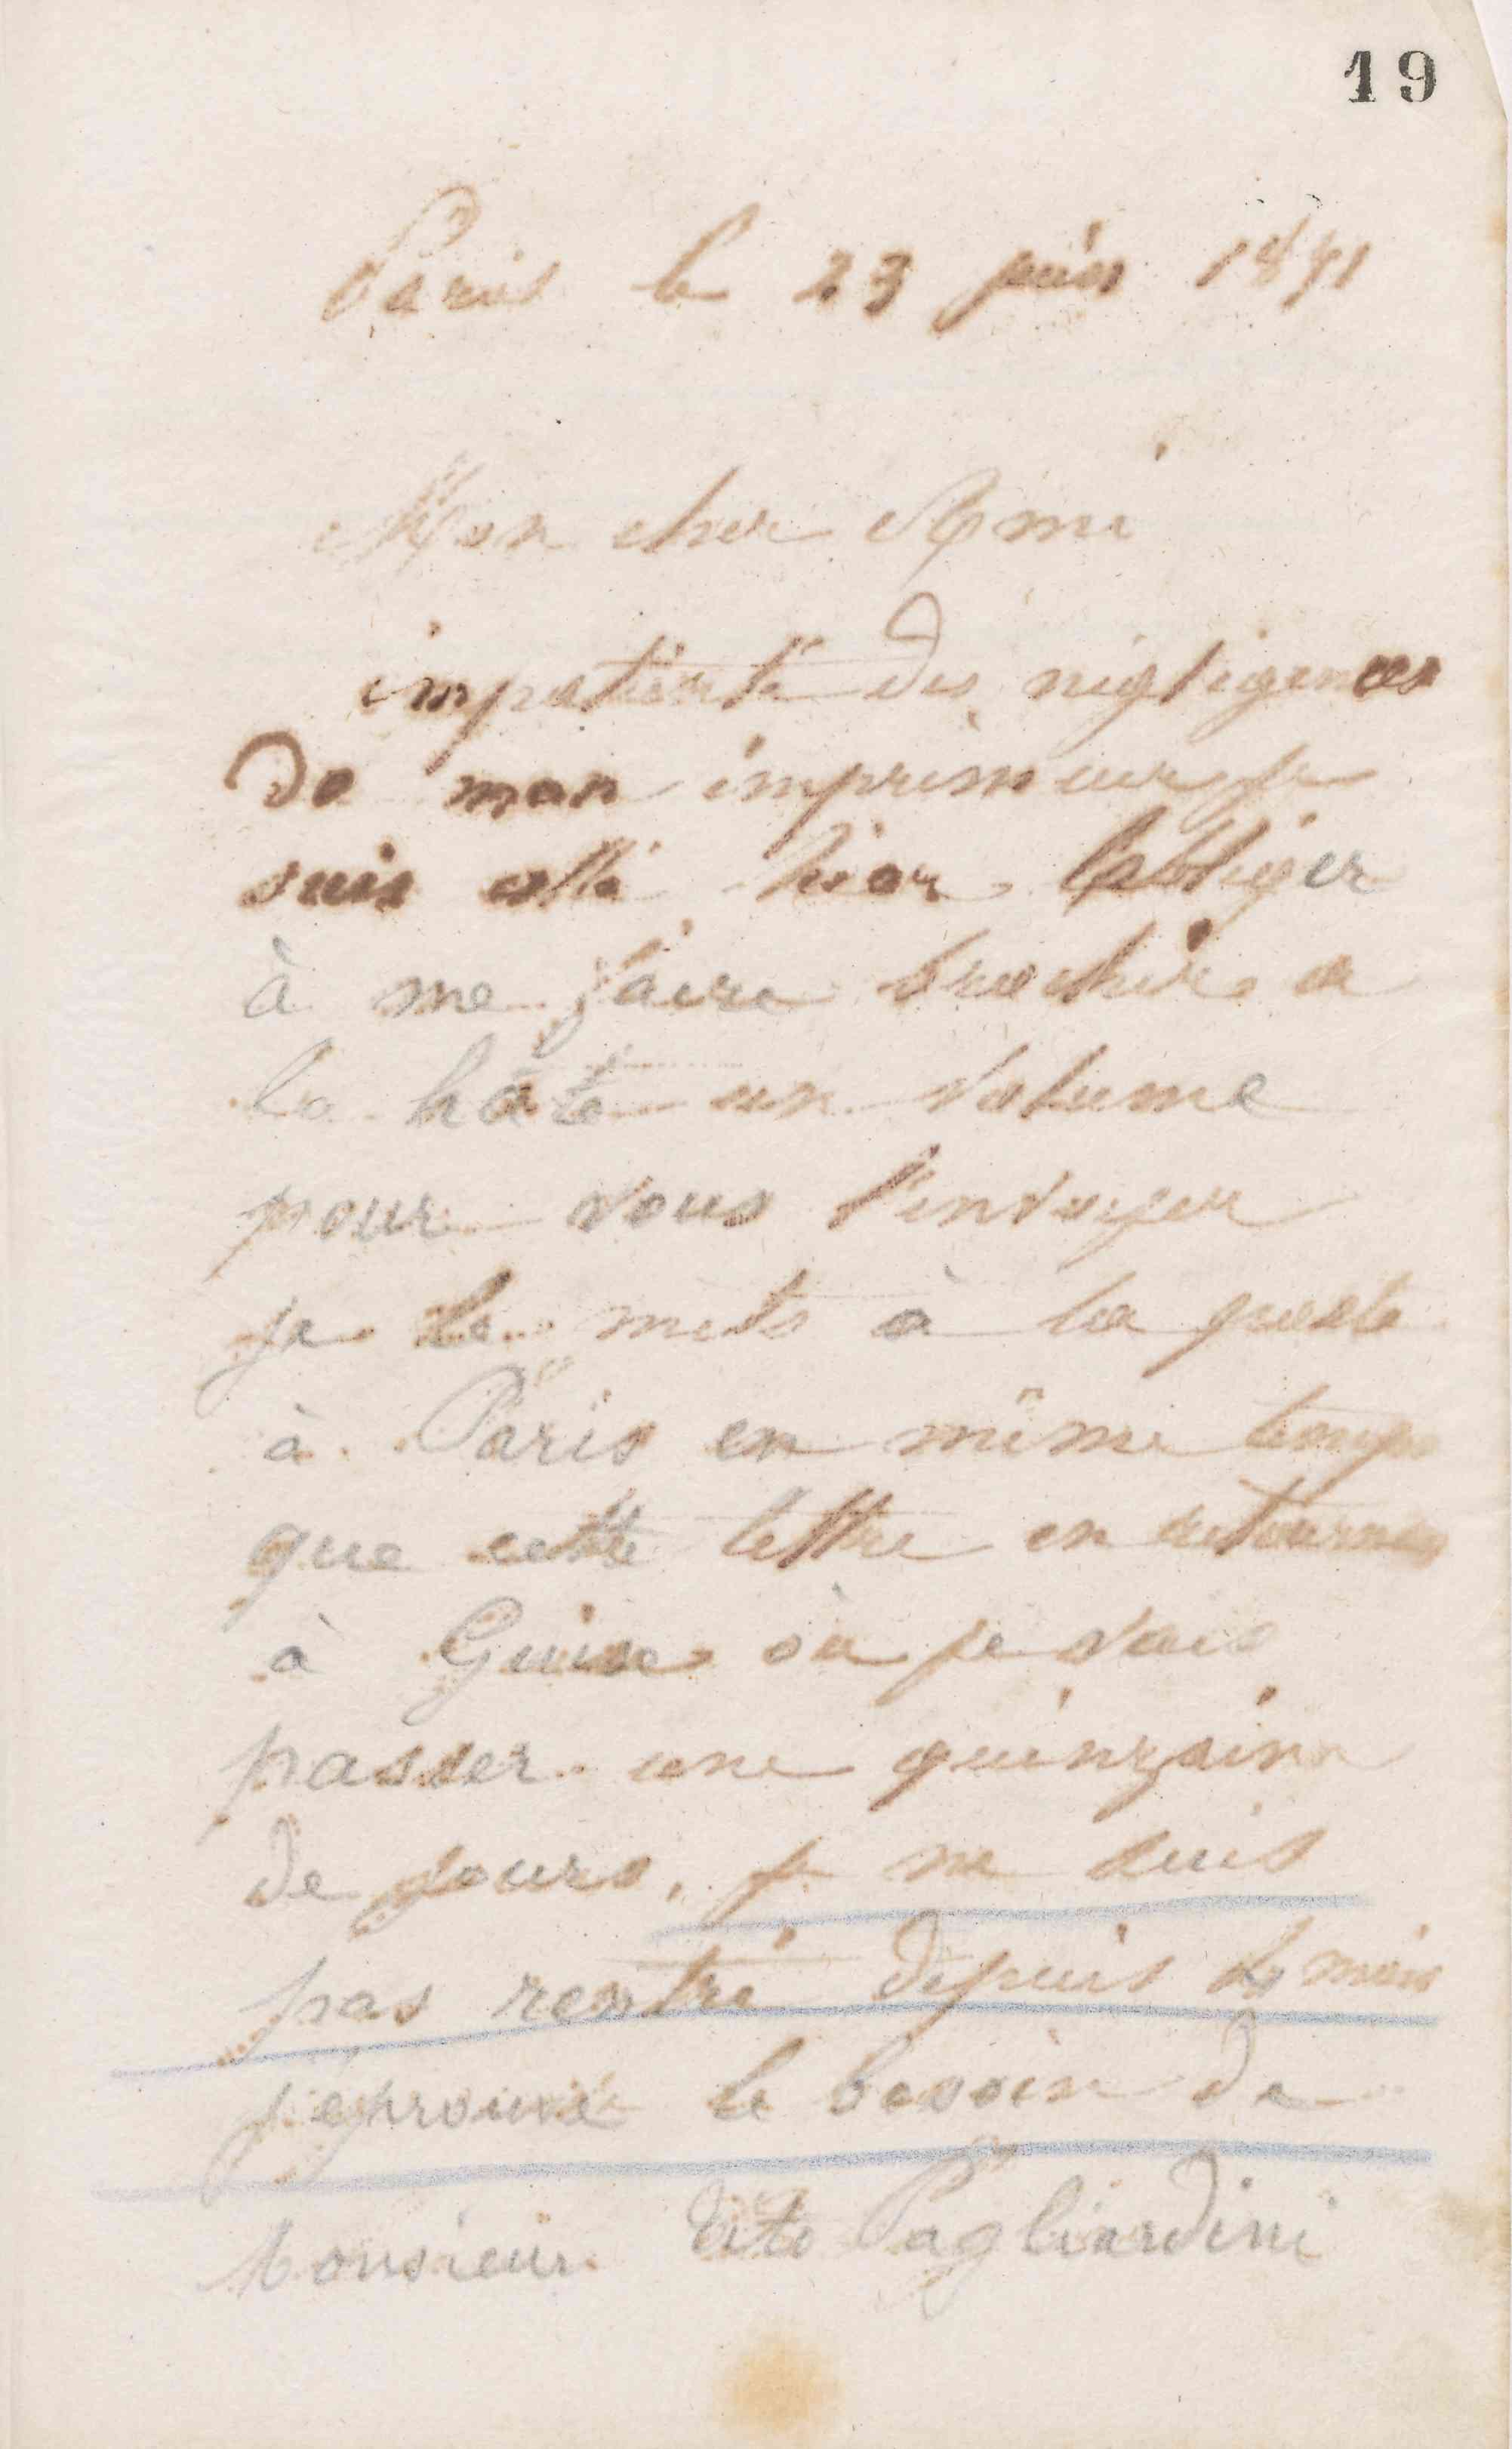 19
Paris le 23 juin 1871
Mon cher Ami
impatienté des négligences
de mon imprimeur je
suis allé hier l'obliger
à me faire brocher a
la hâte un volume
pour vous l'envoyer
je le mets à la poste
à Paris en même temps
que cette lettre en retournant
à Guise où je vais
passer une quinzaine
de jours, je ne suis
pas rentré depuis 4 mois
j'éprouve le besoin de
Monsieur Tito Pagliardini